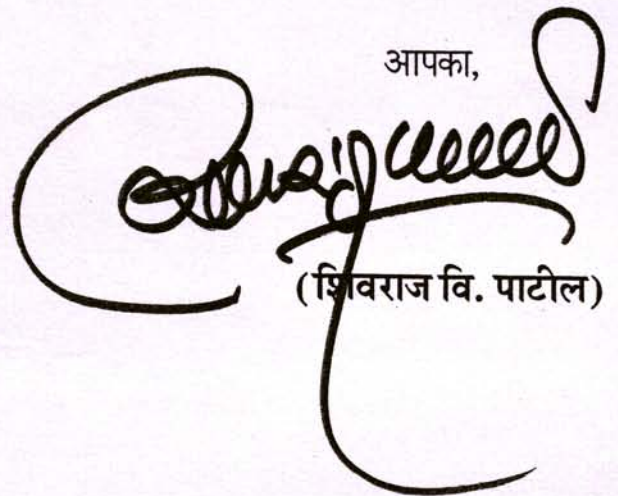 आपका,
(शिवराज वि. पाटील)